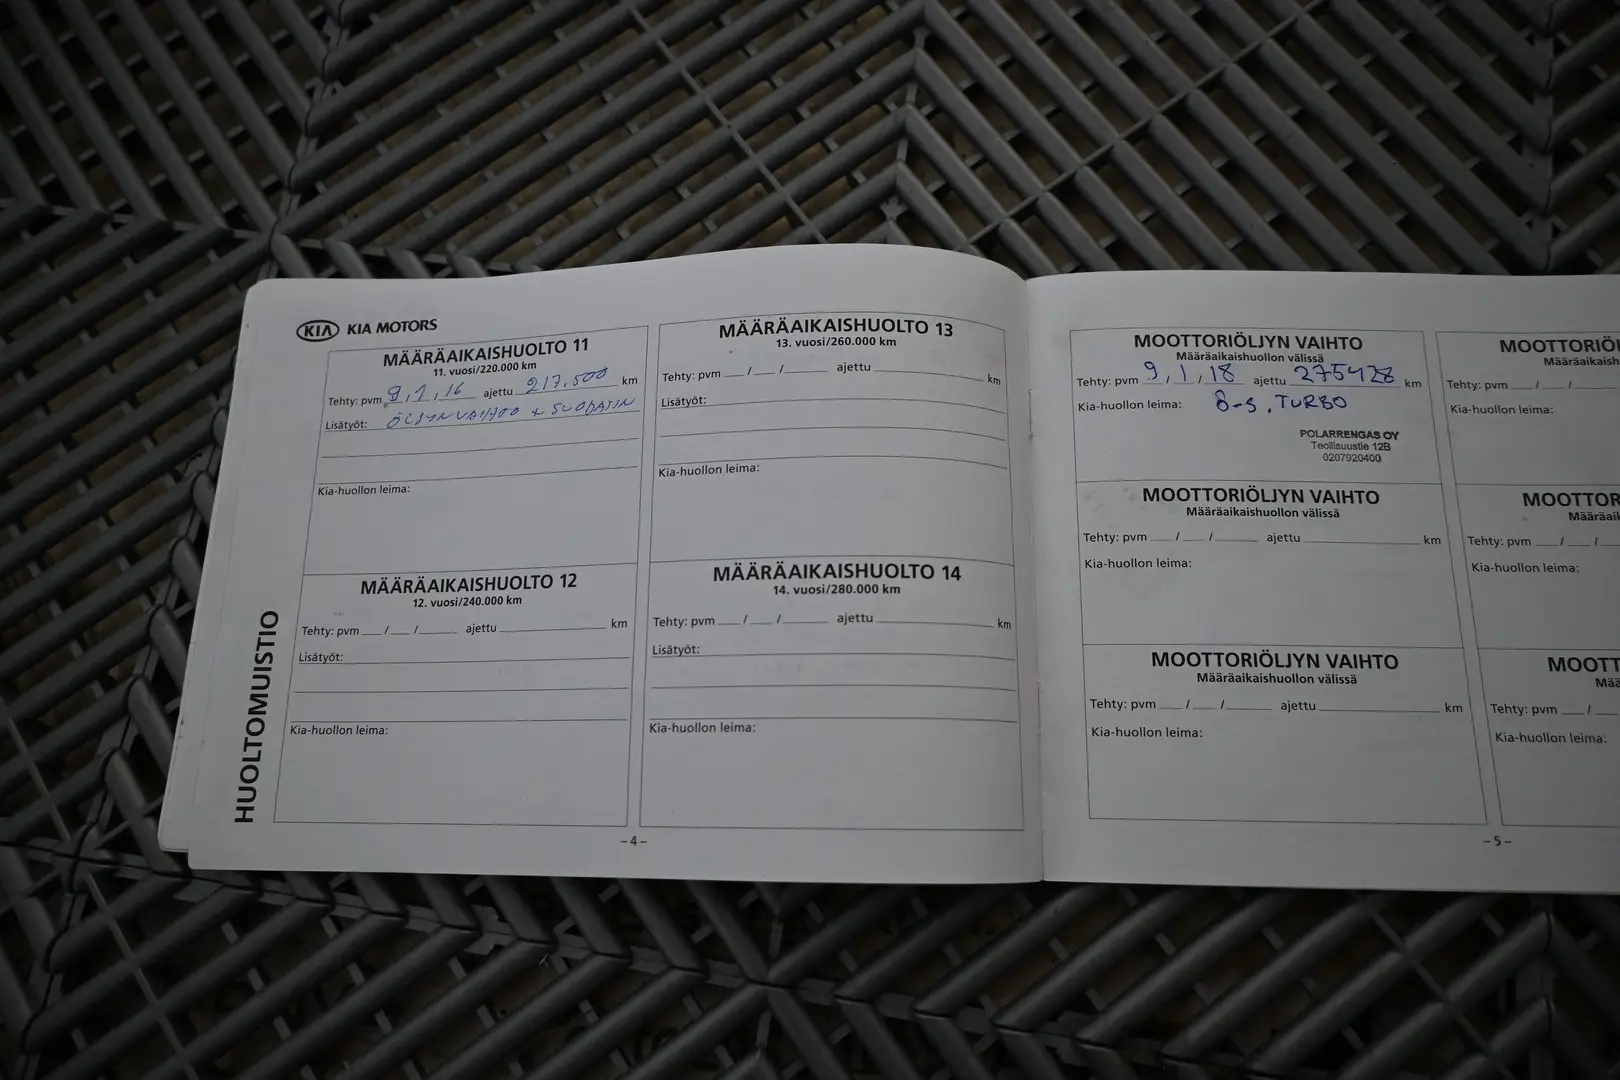 KIA KIA MOTORS
HUOLTOMUISTIO
MÄÄRÄAIKAISHUOLTO 11
11. vuosi/220.000 km
Tehty: pvm 9 / 1 / 16 ajettu 217.500 km
Lisätyöt: ÖLJYNVAIHTO + SUODATIN
Kia-huollon leima:
MÄÄRÄAIKAISHUOLTO 12
12. vuosi/240.000 km
Tehty: pvm ___ / ___ / ______ ajettu ______ km
Lisätyöt:
Kia-huollon leima:
MÄÄRÄAIKAISHUOLTO 13
13. vuosi/260.000 km
Tehty: pvm ___ / ___ / ______ ajettu ______ km
Lisätyöt:
Kia-huollon leima:
MÄÄRÄAIKAISHUOLTO 14
14. vuosi/280.000 km
Tehty: pvm ___ / ___ / ______ ajettu ______ km
Lisätyöt:
Kia-huollon leima:
– 4 –
MOOTTORIÖLJYN VAIHTO
Määräaikaishuollon välissä
Tehty: pvm 9 / 1 / 18 ajettu 275428 km
Kia-huollon leima: Ö-S, TURBO
POLARRENGAS OY
Teollisuustie 12B
0207920400
MOOTTORIÖLJYN VAIHTO
Määräaikaishuollon välissä
Tehty: pvm ___ / ___ / ______ ajettu ______ km
Kia-huollon leima:
MOOTTORIÖLJYN VAIHTO
Määräaikaishuollon välissä
Tehty: pvm ___ / ___ / ______ ajettu ______ km
Kia-huollon leima:
MOOTTORIÖL
Määräaikaish
Tehty: pvm ___ / ___ / ___
Kia-huollon leima:
MOOTTOR
Määräaik
Tehty: pvm ___ / ___ / ___
Kia-huollon leima:
MOOTT
Mää
Tehty: pvm ___ / ___
Kia-huollon leima:
– 5 –